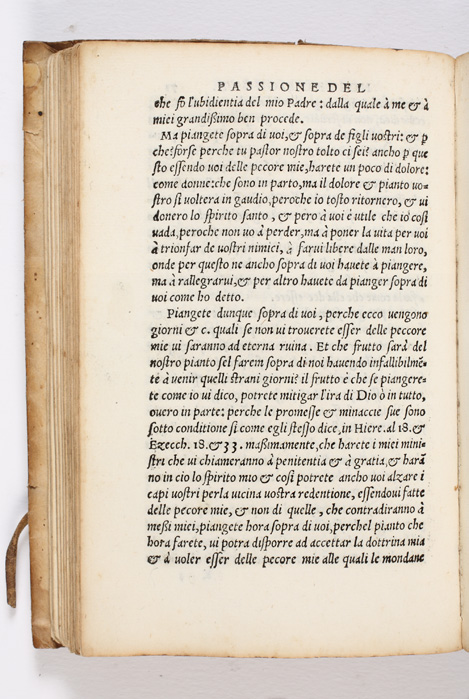 PASSIONE DEL
che fò l'ubidientia del mio Padre: dalla quale à me & à
miei grandißimo ben procede.
Ma piangete sopra di uoi, & sopra de figli uostri: & p
che? forse perche tu pastor nostro tolto ci sei? ancho p que
sto essendo uoi delle pecore mie, harete un poco di dolore:
come donne: che sono in parto, ma il dolore & pianto uo-
stro si uoltera in gaudio, peroche io tosto ritornero, & ui
donero lo spirito santo, & pero à uoi è utile che io così
uada, peroche non uo à perder, ma à poner la uita per uoi
à trionfar de uostri nimici, à farui libere dalle man loro,
onde per questo ne ancho sopra di uoi hauete à piangere,
ma à rallegrarui, & per altro hauete da pianger sopra di
uoi come ho detto.
Piangete dunque sopra di uoi, perche ecco uengono
giorni & c. quali se non ui trouerete esser delle pecore
mie ui saranno ad eterna ruina. Et che frutto sarà del
nostro pianto sel farem sopra di noi hauendo infallibilmē-
te à uenir quelli strani giorni? il frutto è che se piangere-
te come io ui dico, potrete mitigar l'ira di Dio ò in tutto,
ouero in parte: perche le promesse & minaccie sue sono
sotto conditione si come egli stesso dice, in Hiere. al 18. &
Ezecch. 18. & 33. maßimamente, che harete i miei mini-
stri che ui chiameranno à penitentia & à gratia, & harā
no in cio lo spirito mio & così potrete ancho uoi alzare i
capi uostri per la uicina uostra redentione, essendoui fatte
delle pecore mie, & non di quelle, che contradiranno à
meßi miei, piangete hora sopra di uoi, perchel pianto che
hora farete, ui potra disporre ad accettar la dottrina mia
& à uoler esser delle pecore mie alle quali le mondane